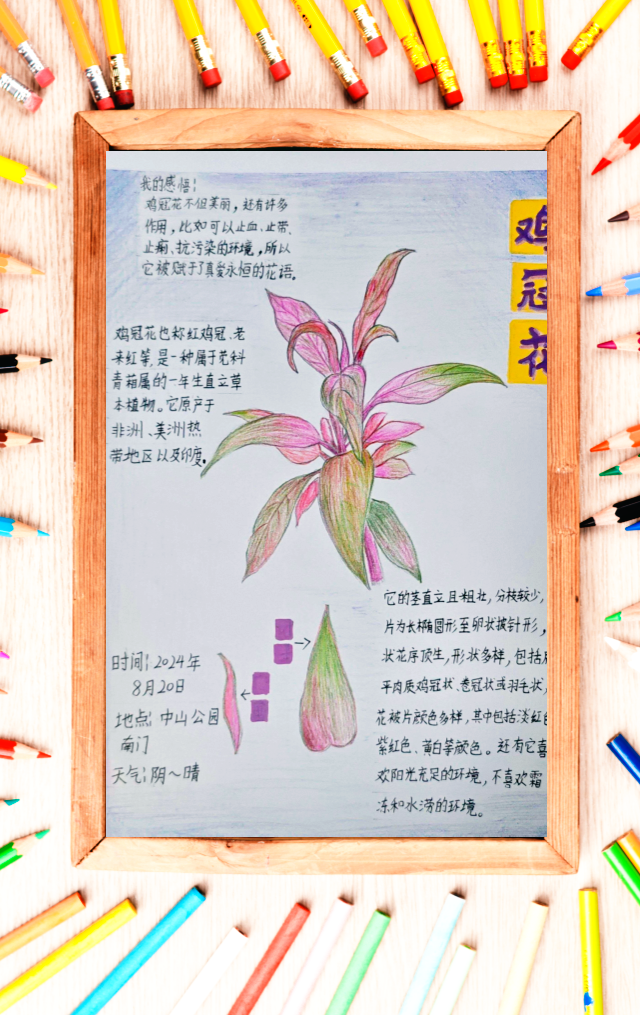 我的感悟：
鸡冠花不但美丽，还有许多
作用，比如可以止血、止带、
止痢、抗污染的环境，所以
它被赋于了真爱永恒的花语。
鸡冠花
鸡冠花也称红鸡冠、老
来红等，是一种属于苋科
青葙属的一年生直立草
本植物。它原产于
非洲、美洲热
带地区以及印度。
它的茎直立且粗壮，分枝较少，
片为长椭圆形至卵状披针形，
状花序顶生，形状多样，包括
平肉质鸡冠状、卷冠状或羽毛状，
花被片颜色多样，其中包括淡红色
紫红色、黄白等颜色。还有它喜
欢阳光充足的环境，不喜欢霜
冻和水涝的环境。
时间：2024年
8月20日
地点：中山公园
南门
天气：阴～晴